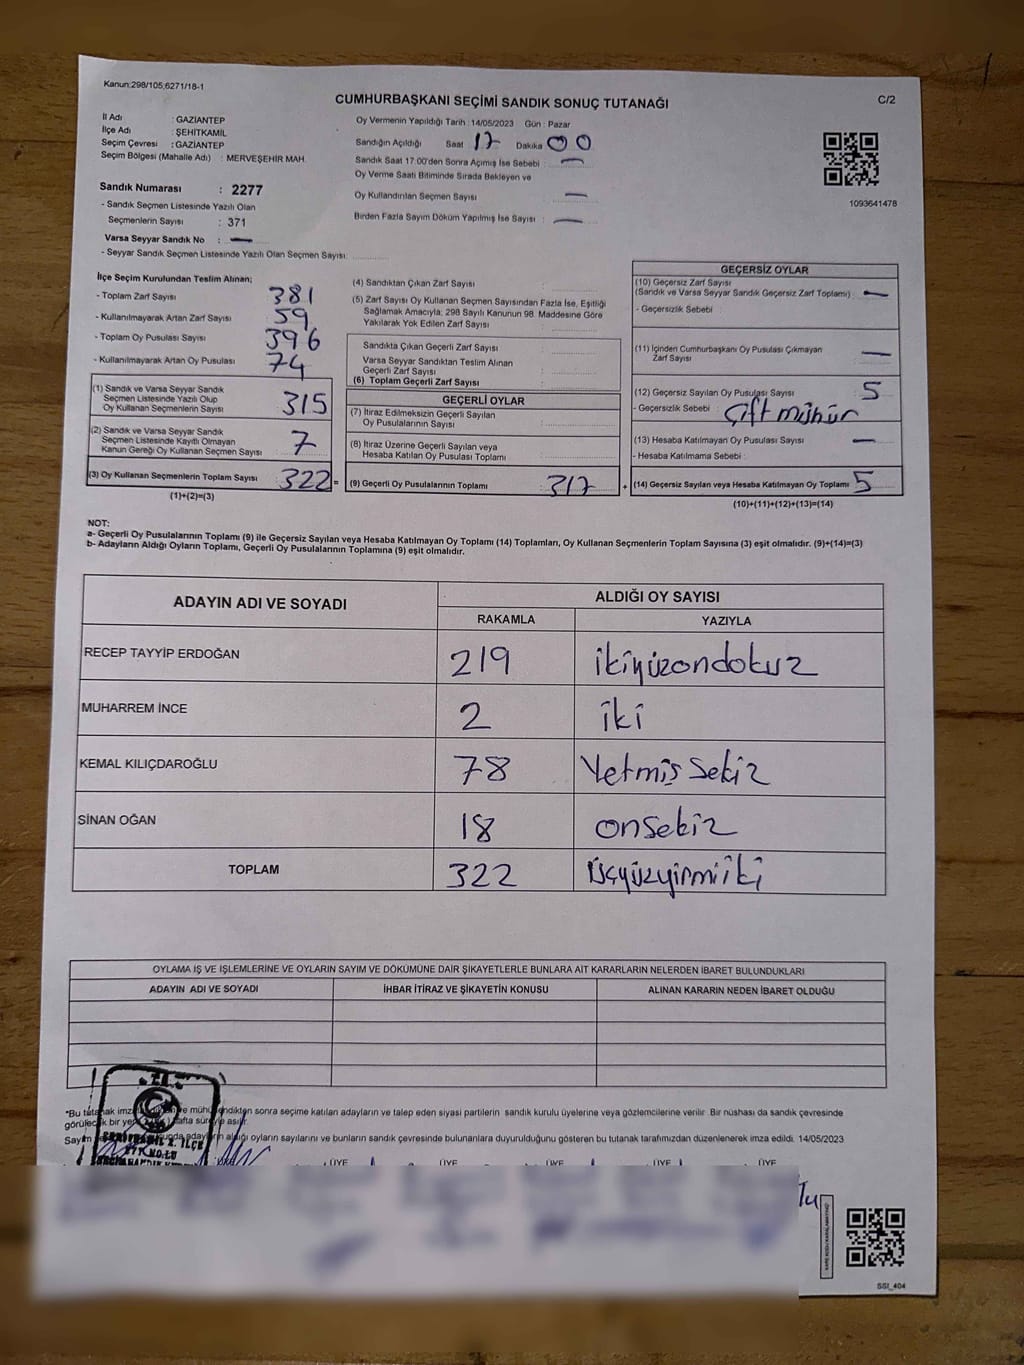 Kanun:298/105,6271/18-1
CUMHURBAŞKANI SEÇİMİ SANDIK SONUÇ TUTANAĞI
C/2
İl Adı : GAZİANTEP
İlçe Adı : ŞEHİTKAMİL
Seçim Çevresi : GAZİANTEP
Seçim Bölgesi (Mahalle Adı) : MERVEŞEHİR MAH.
Sandık Numarası : 2277
- Sandık Seçmen Listesinde Yazılı Olan
Seçmenlerin Sayısı : 371
Varsa Seyyar Sandık No : —
- Seyyar Sandık Seçmen Listesinde Yazılı Olan Seçmen Sayısı:
Oy Vermenin Yapıldığı Tarih : 14/05/2023 Gün : Pazar
Sandığın Açıldığı Saat 17 Dakika 00
Sandık Saat 17:00'den Sonra Açımış İse Sebebi : —
Oy Verme Saati Bitiminde Sırada Bekleyen ve
Oy Kullandırılan Seçmen Sayısı : —
Birden Fazla Sayım Döküm Yapılmış İse Sayısı : —
1093641478
İlçe Seçim Kurulundan Teslim Alınan;
- Toplam Zarf Sayısı 381
- Kullanılmayarak Artan Zarf Sayısı 59
- Toplam Oy Pusulası Sayısı 396
- Kullanılmayarak Artan Oy Pusulası 74
(1) Sandık ve Varsa Seyyar Sandık
Seçmen Listesinde Yazılı Olup
Oy Kullanan Seçmenlerin Sayısı 315
(2) Sandık ve Varsa Seyyar Sandık
Seçmen Listesinde Kayıtlı Olmayan
Kanun Gereği Oy Kullanan Seçmen Sayısı 7
(3) Oy Kullanan Seçmenlerin Toplam Sayısı 322 =
(1)+(2)=(3)
(4) Sandıktan Çıkan Zarf Sayısı :
(5) Zarf Sayısı Oy Kullanan Seçmen Sayısından Fazla İse, Eşitliği
Sağlamak Amacıyla; 298 Sayılı Kanunun 98. Maddesine Göre
Yakılarak Yok Edilen Zarf Sayısı :
Sandıkta Çıkan Geçerli Zarf Sayısı :
Varsa Seyyar Sandıktan Teslim Alınan
Geçerli Zarf Sayısı :
(6) Toplam Geçerli Zarf Sayısı :
GEÇERLİ OYLAR
(7) İtiraz Edilmeksizin Geçerli Sayılan
Oy Pusulasının Sayısı :
(8) İtiraz Üzerine Geçerli Sayılan veya
Hesaba Katılan Oy Pusulası Toplamı :
(9) Geçerli Oy Pusulalarının Toplamı : 317 +
GEÇERSİZ OYLAR
(10) Geçersiz Zarf Sayısı
(Sandık ve Varsa Seyyar Sandık Geçersiz Zarf Toplamı) : —
- Geçersizlik Sebebi :
(11) İçinden Cumhurbaşkanı Oy Pusulası Çıkmayan
Zarf Sayısı : —
(12) Geçersiz Sayılan Oy Pusulası Sayısı : 5
- Geçersizlik Sebebi : Çift mühür
(13) Hesaba Katılmayan Oy Pusulası Sayısı : —
- Hesaba Katılmama Sebebi :
(14) Geçersiz Sayılan veya Hesaba Katılmayan Oy Toplamı : 5
(10)+(11)+(12)+(13)=(14)
NOT:
a- Geçerli Oy Pusulalarının Toplamı (9) ile Geçersiz Sayılan veya Hesaba Katılmayan Oy Toplamı (14) Toplamları, Oy Kullanan Seçmenlerin Toplam Sayısına (3) eşit olmalıdır. (9)+(14)=(3)
b- Adayların Aldığı Oyların Toplamı, Geçerli Oy Pusulalarının Toplamına (9) eşit olmalıdır.
ADAYIN ADI VE SOYADI ALDIĞI OY SAYISI
RAKAMLA YAZIYLA
RECEP TAYYİP ERDOĞAN 219 ikiyüzondokuz
MUHARREM İNCE 2 iki
KEMAL KILIÇDAROĞLU 78 Yetmiş Sekiz
SİNAN OĞAN 18 onsekiz
TOPLAM 322 üçyüzyirmiiki
OYLAMA İŞ VE İŞLEMLERİNE VE OYLARIN SAYIM VE DÖKÜMÜNE DAİR ŞİKAYETLERLE BUNLARA AİT KARARLARIN NELERDEN İBARET BULUNDUKLARI
ADAYIN ADI VE SOYADI İHBAR İTİRAZ VE ŞİKAYETİN KONUSU ALINAN KARARIN NEDEN İBARET OLDUĞU
*Bu tutanak imza ve mühürlendikten sonra seçime katılan adayların ve talep eden siyasi partilerin sandık kurulu üyelerine veya gözlemcilerine verilir. Bir nüshası da sandık çevresinde
görülecek bir yere hafta süreyle asılır.
Sayım adayların aldığı oyların sayılarını ve bunların sandık çevresinde bulunanlara duyurulduğunu gösteren bu tutanak tarafımızdan düzenlenerek imza edildi. 14/05/2023
ÜYE ÜYE ÜYE ÜYE ÜYE
SSI_404